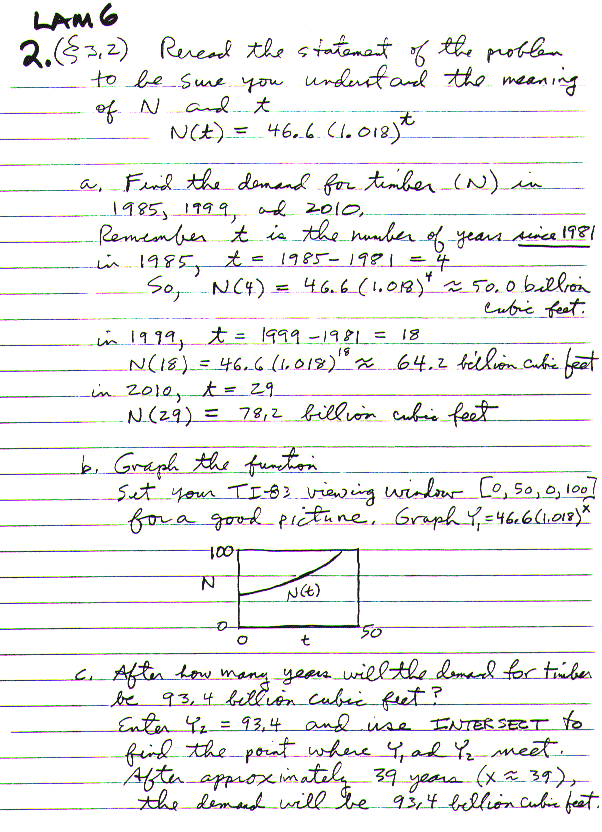 LAM 6
2. (§3,2) Reread the statement of the problem
to be sure you understand the meaning
of N and t
N(t) = 46.6 (1.018)^t
a. Find the demand for timber (N) in
1985, 1999, ad 2010.
Remember t is the number of years since 1981
in 1985, t = 1985 - 1981 = 4
So, N(4) = 46.6 (1.018)^4 ≈ 50.0 billion
cubic feet.
in 1999, t = 1999 - 1981 = 18
N(18) = 46.6 (1.018)^18 ≈ 64.2 billion cubic feet
in 2010, t = 29
N(29) = 78,2 billion cubic feet
b. Graph the function
Set your TI-83 viewing window [0, 50, 0, 100]
for a good picture. Graph Y₁ = 46.6(1.018)^x
100
N
N(t)
0
0 t 50
c. After how many years will the demad for timber
be 93.4 billion cubic feet?
Enter Y₂ = 93.4 and use INTERSECT to
find the point where Y₁ ad Y₂ meet.
After approximately 39 years (x ≈ 39),
the demand will be 93,4 billion cubic feet.